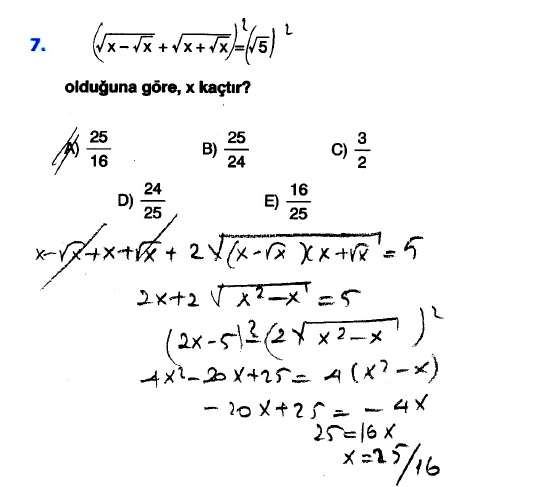 7. (√x−√x + √x+√x)²=(√5)²
olduğuna göre, x kaçtır?
A) 25/16 B) 25/24 C) 3/2
D) 24/25 E) 16/25
x−√x+x+√x + 2√(x−√x)(x+√x) = 5
2x+2√x²−x = 5
(2x−5)²=(2√x²−x)²
4x²−20x+25= 4(x²−x)
−20x+25 = −4x
25=16x
x=25/16